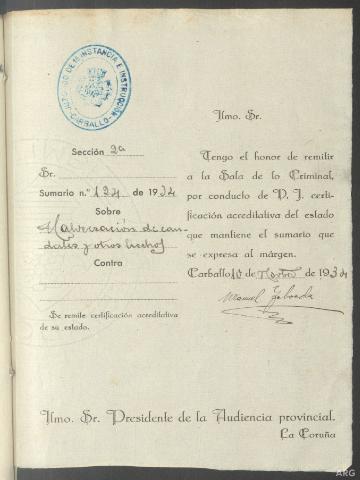 JUZGADO DE 1ª INSTANCIA E INSTRUCCIÓN
CARBALLO
Ilmo. Sr.
Sección 2ª
Sr.
Sumario n.º 124 de 1934
Sobre
Malversación de cau-
dales y otros hechos
Contra
Se remite certificación acreditativa
de su estado.
Tengo el honor de remitir
a la Sala de lo Criminal,
por conducto de V. I. certi-
ficación acreditativa del estado
que mantiene el sumario que
se expresa al márgen.
Carballo 10 de de 1934
Manuel
Ilmo. Sr. Presidente de la Audiencia provincial.
La Coruña
ARG